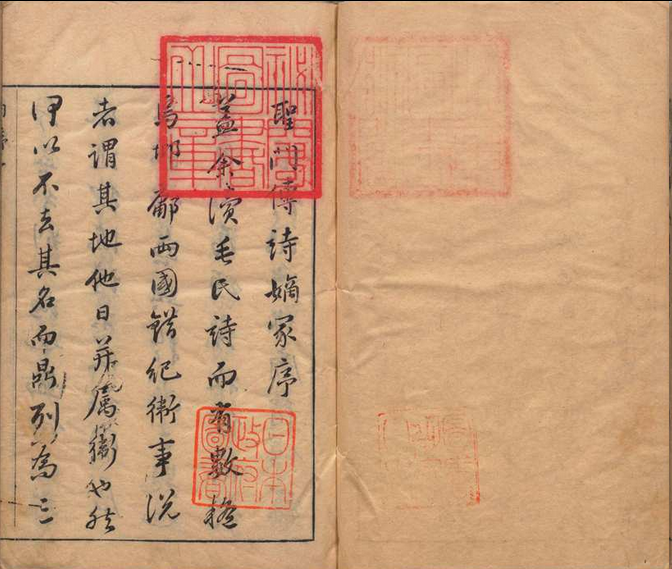 聖門傳詩嫡冢序
蓋余讀毛氏詩而有數疑
焉邶鄘兩國錯紀衛事説
者謂其地他日并屬衛也然
何以不去其名而鼎列為三
日本政府圖書